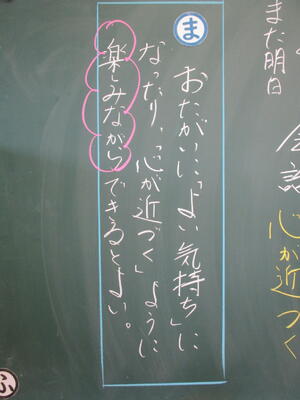 また明日
会話
心が近づく
ま
おたがいに「よい気持ち」に
なったり、「心が近づく」ように
楽しみながらできるとよい。
ふ